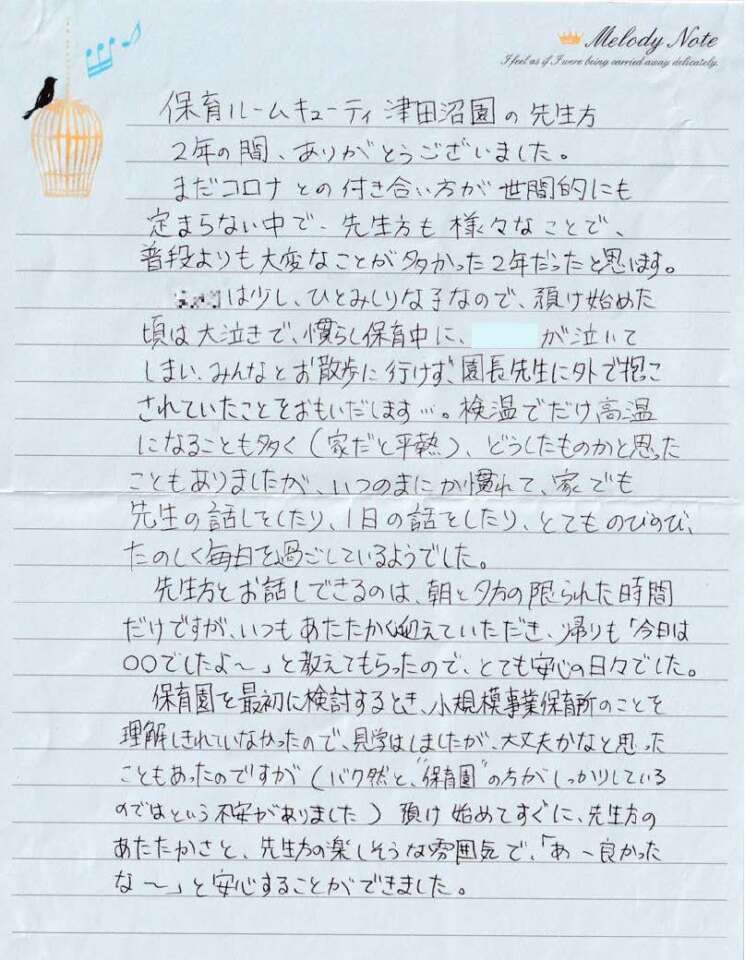 Melody Note
I feel as if I were being carried away delicately.
保育ルームキューティ津田沼園の先生方
2年の間、ありがとうございました。
まだコロナとの付き合い方が世間的にも
定まらない中で、先生方も様々なことで、
普段よりも大変なことが多かった2年だったと思います。
は少し、ひとみしりな子なので、預け始めた
頃は大泣きで、慣らし保育中に、が泣いて
しまい、みんなとお散歩に行けず、園長先生に外で抱こ
されていたことをおもいだします…。検温でだけ高温
になることも多く(家だと平熱)、どうしたものかと思った
こともありましたが、いつのまにか慣れて、家でも
先生の話しをしたり、1日の話をしたり、とてものびのび、
たのしく毎日を過ごしているようでした。
先生方とお話しできるのは、朝と夕方の限られた時間
だけですが、いつもあたたかく迎えていただき、帰りも「今日は
○○でしたよ〜」と教えてもらったので、とても安心の日々でした。
保育園を最初に検討するとき、小規模事業保育所のことを
理解しきれていなかったので、見学はしましたが、大丈夫かなと思った
こともあったのですが(バク然と、"保育園"の方がしっかりしている
のではという不安がありました)預け始めてすぐに、先生方の
あたたかさと、先生方の楽しそうな雰囲気で、「あー良かった
な〜」と安心することができました。